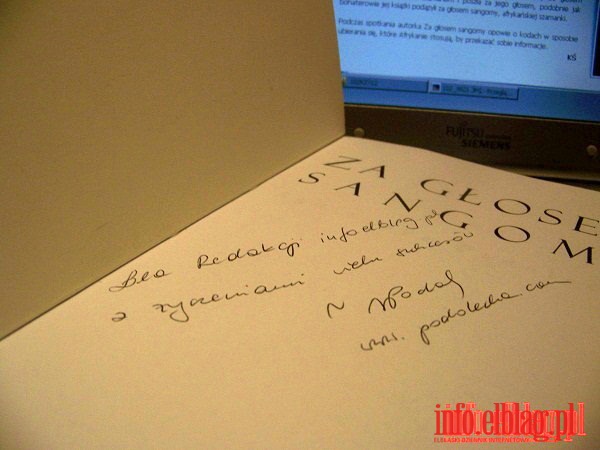 bohaterowie jej książki podążył za głosem sangomy, afrykańskiej szamanki.
Podczas spotkania autorka Za głosem sangomy opowie o kodach w sposobie
ubierania się, które Afrykanie stosują, by przekazać sobie informacje.
KŚ
FUJITSU
SIEMENS
ZA GŁOSE
SANGOM
Dla Redakcji infoelblag.pl
z życzeniami wielu sukcesów
www.podolecka.com
info.elblag.pl
ELBLĄSKI DZIENNIK INTERNETOWY